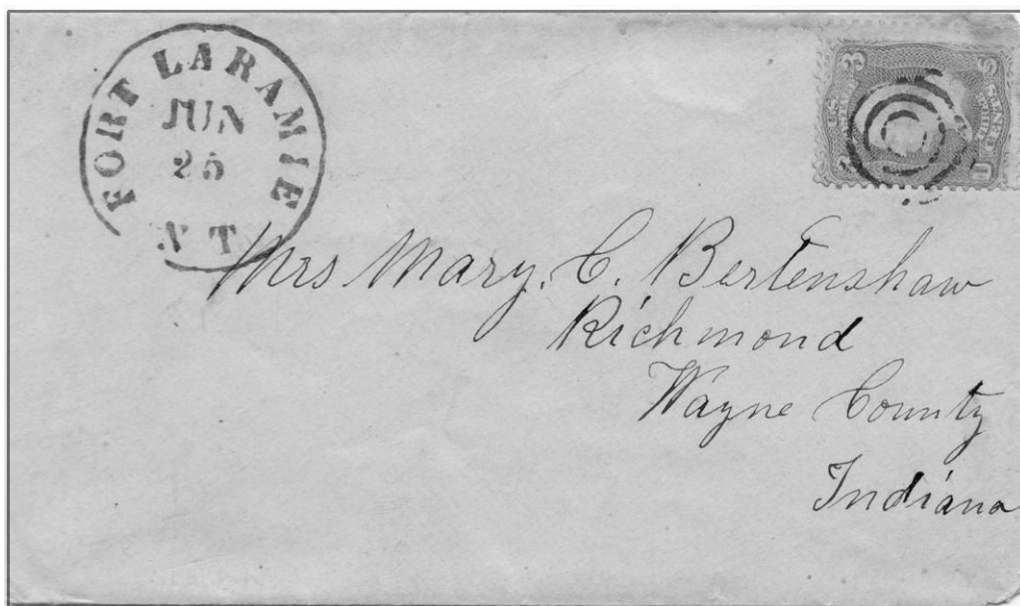 FORT LARAMIE
JUN
25
N T
Mrs Mary. C. Bertenshaw
Richmond
Wayne County
Indiana